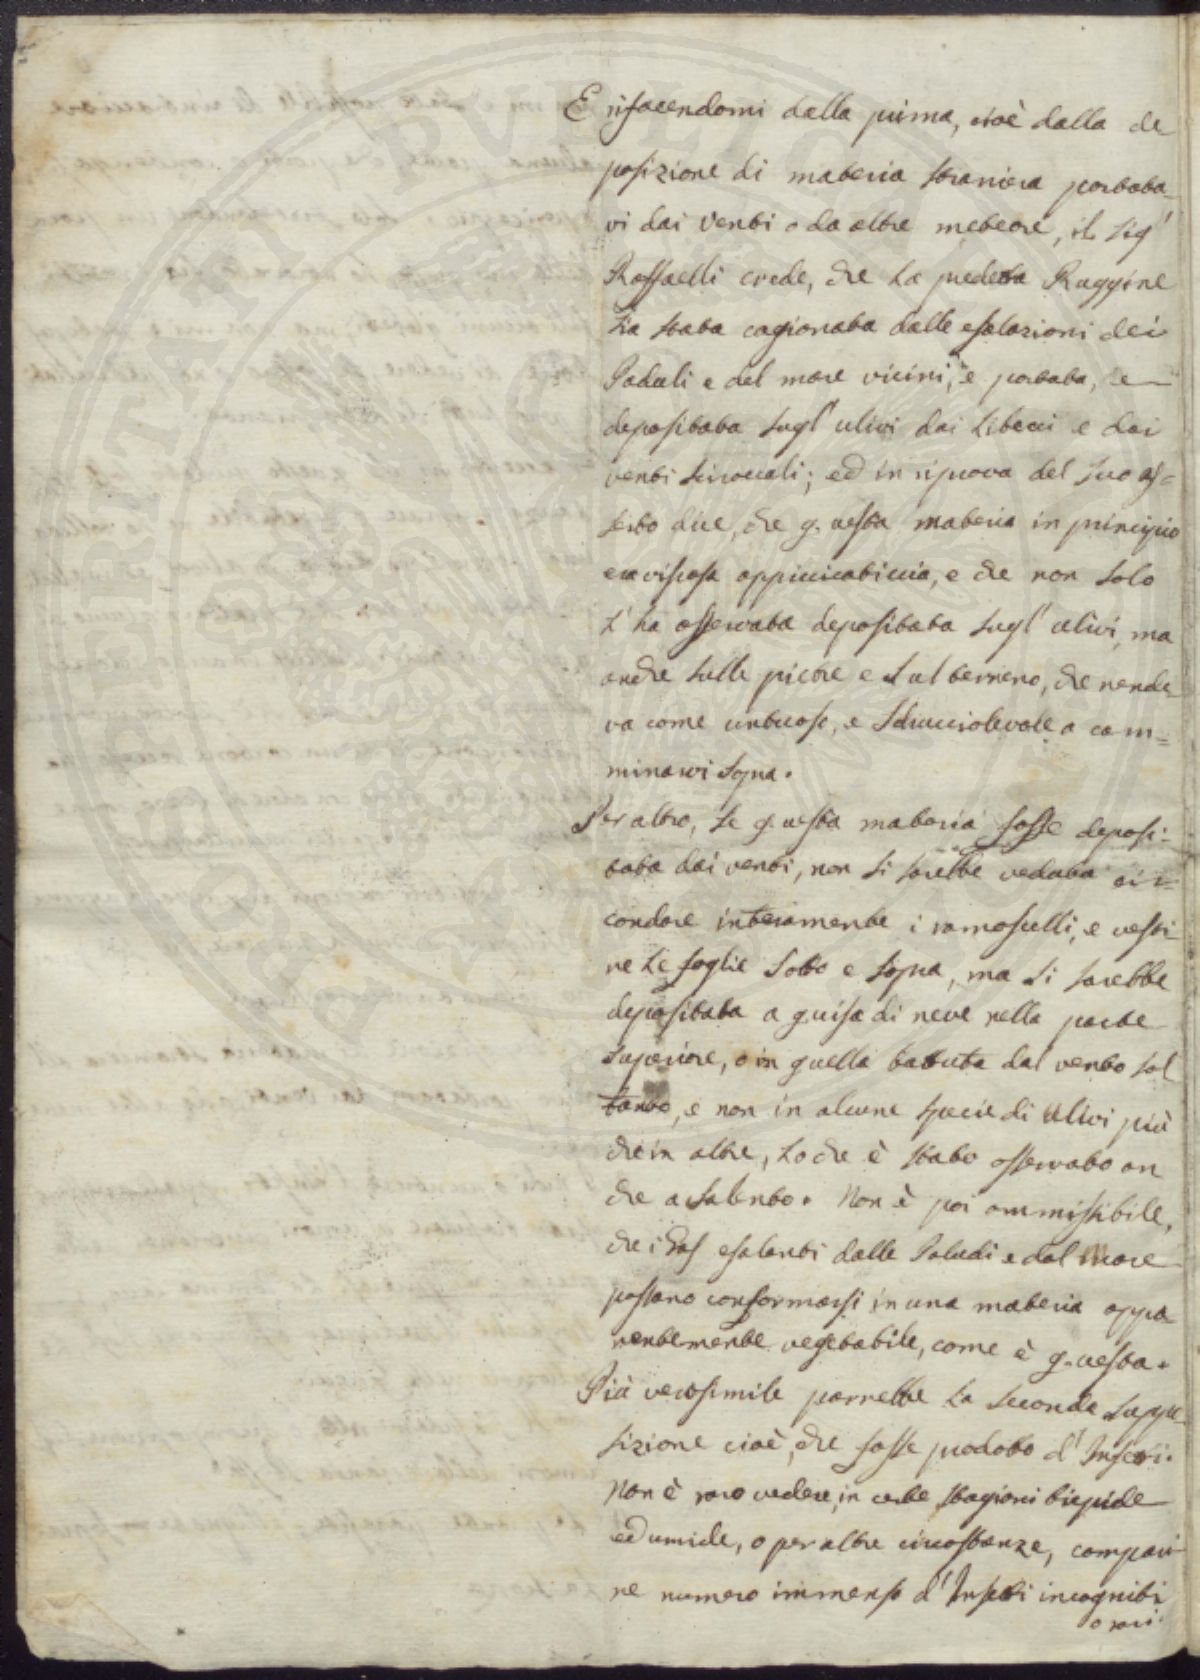 E rifacendomi dalla prima, cioè dalla de
posizione di materia straniera portata
vi dai venti o da altre meteore, il Sigr
Raffaelli crede, che la pedetta Ruggine
sia stata cagionata dalle esalazioni dei
Paduli e del mare vicini, e portata, e
depositata sugl' ulivi dai Libecci e dai
venti sciroccali; ed in riprova del suo as=
serto dice, che questa materia in principio
era viscosa appiccicaticcia, e che non solo
l' ha osservata depositata sugl' ulivi, ma
anche sulle pietre e sul terreno, che rende
va come untuoso, e sdrucciolevole a cam=
minarvi sopra.
Per altro, se questa materia fosse deposi-
tata dai venti, non si sarebbe veduta cir=
condare interamente i ramoscelli, e vesti
re le foglie sotto e sopra, ma si sarebbe
depositata a guisa di neve nella parte
superiore, o in quella battuta dal vento sol
tanto, e non in alcune specie di ulivi più
che in altre, lo che è stato osservato an
che a Salento. Non è poi ammissibile,
che i Gas esalanti dalle Paludi e dal Mare
possano conformarsi in una materia appa
rentemente vegetabile, come è questa.
Più verosimile parrebbe la seconda suppo-
sizione cioè, che fosse prodotto d' Insetti.
Non è raro vedere, in certe stagioni tiepide
ed umide, o per altre circostanze, compari
re numero immenso d' Insetti incogniti
o rari.